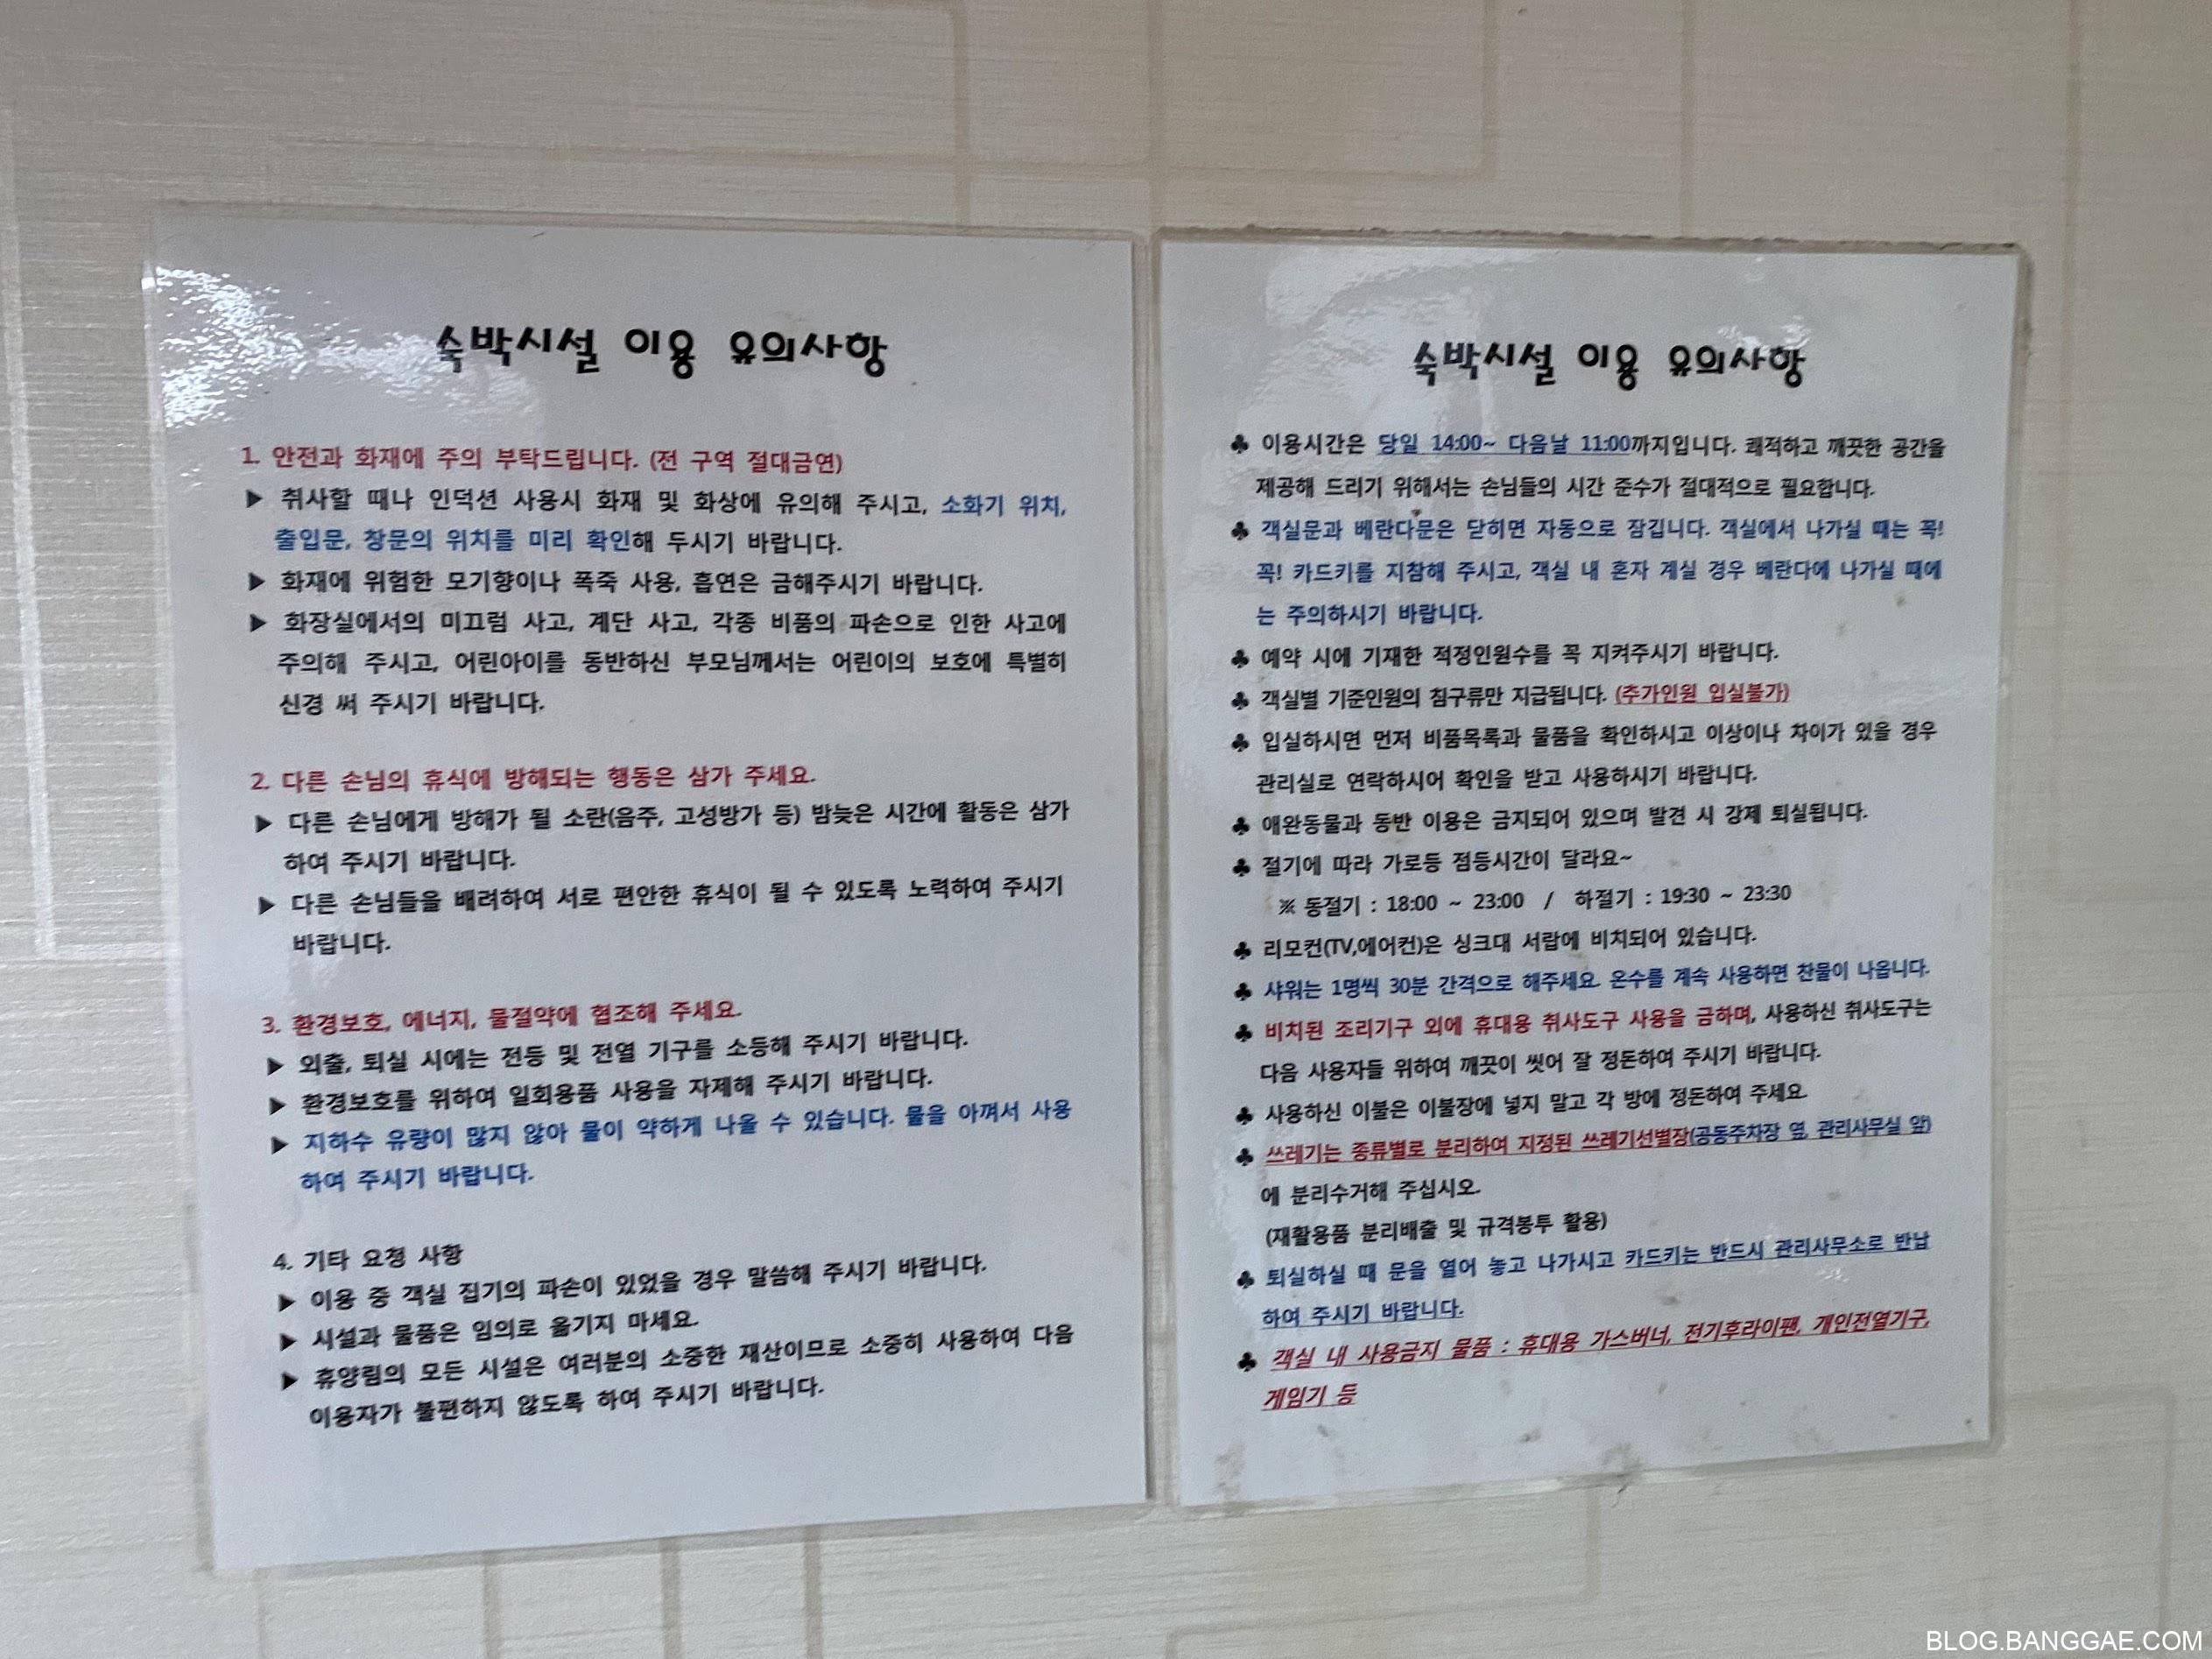 숙박시설 이용 유의사항
1. 안전과 화재에 주의 부탁드립니다. (전 구역 절대금연)
▶ 취사할 때나 인덕션 사용시 화재 및 화상에 유의해 주시고, 소화기 위치,
출입문, 창문의 위치를 미리 확인해 두시기 바랍니다.
▶ 화재에 위험한 모기향이나 폭죽 사용, 흡연은 금해주시기 바랍니다.
▶ 화장실에서의 미끄럼 사고, 계단 사고, 각종 비품의 파손으로 인한 사고에
주의해 주시고, 어린아이를 동반하신 부모님께서는 어린이의 보호에 특별히
신경 써 주시기 바랍니다.
2. 다른 손님의 휴식에 방해되는 행동은 삼가 주세요.
▶ 다른 손님에게 방해가 될 소란(음주, 고성방가 등) 밤늦은 시간에 활동은 삼가
하여 주시기 바랍니다.
▶ 다른 손님들을 배려하여 서로 편안한 휴식이 될 수 있도록 노력하여 주시기
바랍니다.
3. 환경보호, 에너지, 물절약에 협조해 주세요.
▶ 외출, 퇴실 시에는 전등 및 전열 기구를 소등해 주시기 바랍니다.
▶ 환경보호를 위하여 일회용품 사용을 자제해 주시기 바랍니다.
▶ 지하수 유량이 많지 않아 물이 약하게 나올 수 있습니다. 물을 아껴서 사용
하여 주시기 바랍니다.
4. 기타 요청 사항
▶ 이용 중 객실 집기의 파손이 있었을 경우 말씀해 주시기 바랍니다.
▶ 시설과 물품은 임의로 옮기지 마세요.
▶ 휴양림의 모든 시설은 여러분의 소중한 재산이므로 소중히 사용하여 다음
이용자가 불편하지 않도록 하여 주시기 바랍니다.
숙박시설 이용 유의사항
♣ 이용시간은 당일 14:00~ 다음날 11:00까지입니다. 쾌적하고 깨끗한 공간을
제공해 드리기 위해서는 손님들의 시간 준수가 절대적으로 필요합니다.
♣ 객실문과 베란다문은 닫히면 자동으로 잠깁니다. 객실에서 나가실 때는 꼭!
꼭! 카드키를 지참해 주시고, 객실 내 혼자 계실 경우 베란다에 나가실 때에
는 주의하시기 바랍니다.
♣ 예약 시에 기재한 적정인원수를 꼭 지켜주시기 바랍니다.
♣ 객실별 기준인원의 침구류만 지급됩니다. (추가인원 입실불가)
♣ 입실하시면 먼저 비품목록과 물품을 확인하시고 이상이나 차이가 있을 경우
관리실로 연락하시어 확인을 받고 사용하시기 바랍니다.
♣ 애완동물과 동반 이용은 금지되어 있으며 발견 시 강제 퇴실됩니다.
♣ 절기에 따라 가로등 점등시간이 달라요~
※ 동절기 : 18:00 ~ 23:00 / 하절기 : 19:30 ~ 23:30
♣ 리모컨(TV,에어컨)은 싱크대 서랍에 비치되어 있습니다.
♣ 샤워는 1명씩 30분 간격으로 해주세요. 온수를 계속 사용하면 찬물이 나옵니다.
♣ 비치된 조리기구 외에 휴대용 취사도구 사용을 금하며, 사용하신 취사도구는
다음 사용자들 위하여 깨끗이 씻어 잘 정돈하여 주시기 바랍니다.
♣ 사용하신 이불은 이불장에 넣지 말고 각 방에 정돈하여 주세요.
♣ 쓰레기는 종류별로 분리하여 지정된 쓰레기선별장(공동주차장 옆, 관리사무실 앞)
에 분리수거해 주십시오.
(재활용품 분리배출 및 규격봉투 활용)
♣ 퇴실하실 때 문을 열어 놓고 나가시고 카드키는 반드시 관리사무소로 반납
하여 주시기 바랍니다.
♣ 객실 내 사용금지 물품 : 휴대용 가스버너, 전기후라이팬, 개인전열기구,
게임기 등
BLOG.BANGGAE.COM